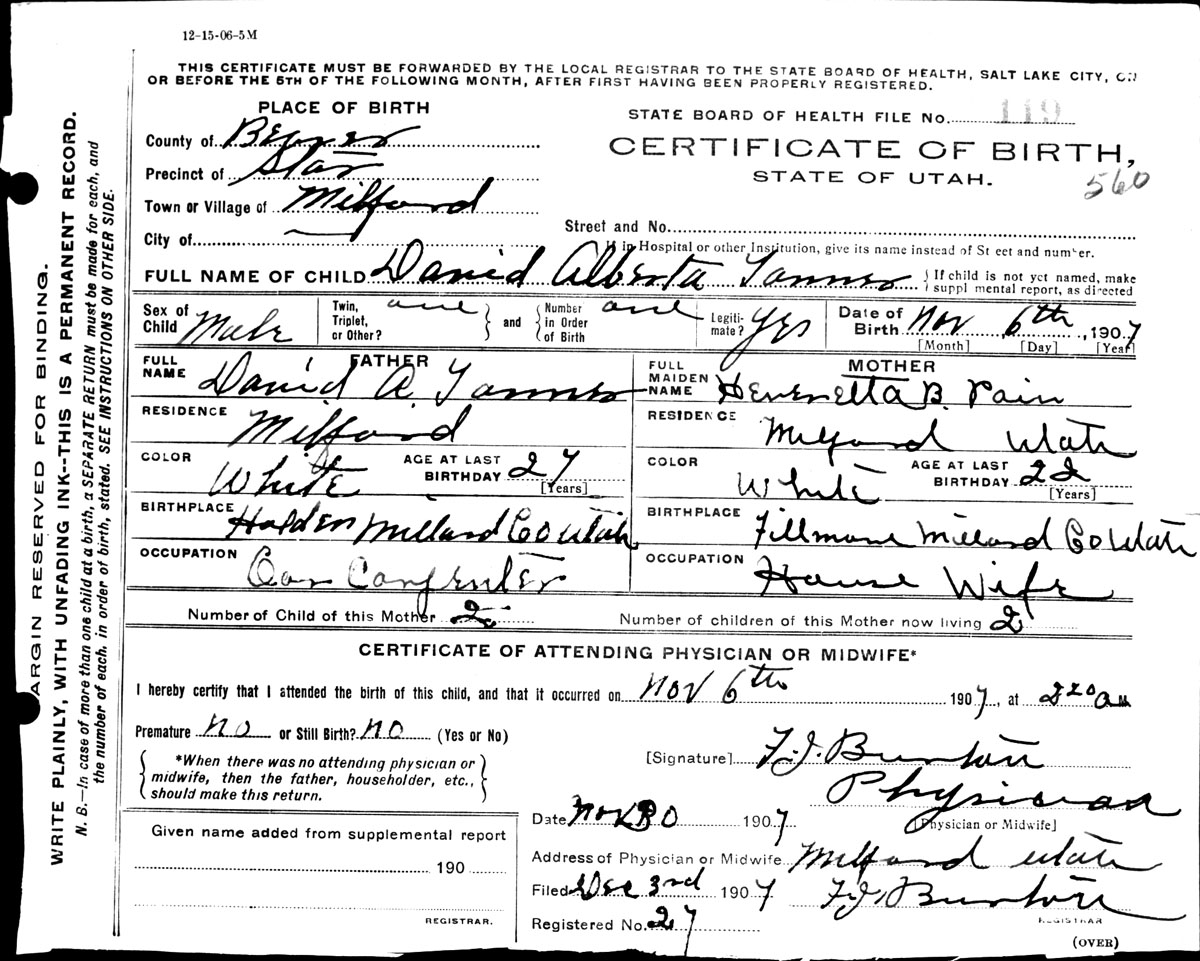 12-15-06-5M
THIS CERTIFICATE MUST BE FORWARDED BY THE LOCAL REGISTRAR TO THE STATE BOARD OF HEALTH, SALT LAKE CITY, ON
OR BEFORE THE 5TH OF THE FOLLOWING MONTH, AFTER FIRST HAVING BEEN PROPERLY REGISTERED.
PLACE OF BIRTH
STATE BOARD OF HEALTH FILE No. 119
County of Beaver
CERTIFICATE OF BIRTH,
Precinct of Star
STATE OF UTAH.
560
Town or Village of Milford
Street and No.
City of
If in Hospital or other Institution, give its name instead of Street and number.
FULL NAME OF CHILD David Alberta Tanner
If child is not yet named, make
supplemental report, as directed
Sex of Child Male
Twin, Triplet, or Other? one and Number in Order of Birth one
Legitimate? Yes
Date of Birth Nov 6th, 1907
[Month] [Day] [Year]
FATHER
FULL NAME David A. Tanner
MOTHER
FULL MAIDEN NAME Henrietta B. Pain
RESIDENCE Milford
RESIDENCE Milford Utah
COLOR White AGE AT LAST BIRTHDAY 27 [Years]
COLOR White AGE AT LAST BIRTHDAY 22 [Years]
BIRTHPLACE Holden Millard Co Utah
BIRTHPLACE Fillmore Millard Co Utah
OCCUPATION Car Carpenter
OCCUPATION House Wife
Number of Child of this Mother 2
Number of children of this Mother now living 2
CERTIFICATE OF ATTENDING PHYSICIAN OR MIDWIFE*
I hereby certify that I attended the birth of this child, and that it occurred on Nov 6th 1907, at 2 20 am
Premature no or Still Birth? no (Yes or No)
*When there was no attending physician or
midwife, then the father, householder, etc.,
should make this return.
[Signature] F.J. Burton
Physician
[Physician or Midwife]
Given name added from supplemental report
190
REGISTRAR.
Date Nov 30 1907
Address of Physician or Midwife Milford Utah
Filed Dec 3rd 1907 F.J. Burton
REGISTRAR
Registered No. 27
(OVER)
MARGIN RESERVED FOR BINDING.
WRITE PLAINLY, WITH UNFADING INK--THIS IS A PERMANENT RECORD.
N. B.—In case of more than one child at a birth, a SEPARATE RETURN must be made for each, and
the number of each, in order of birth, stated. SEE INSTRUCTIONS ON OTHER SIDE.